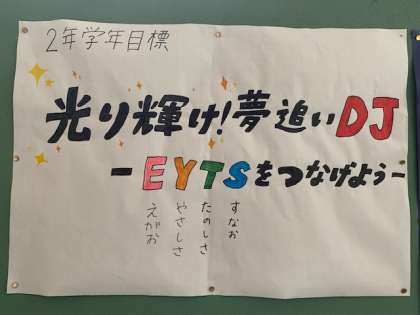 2年学年目標
光り輝け!夢追いDJ
-EYTSをつなげよう-
すなお
たのしさ
やさしさ
えがお